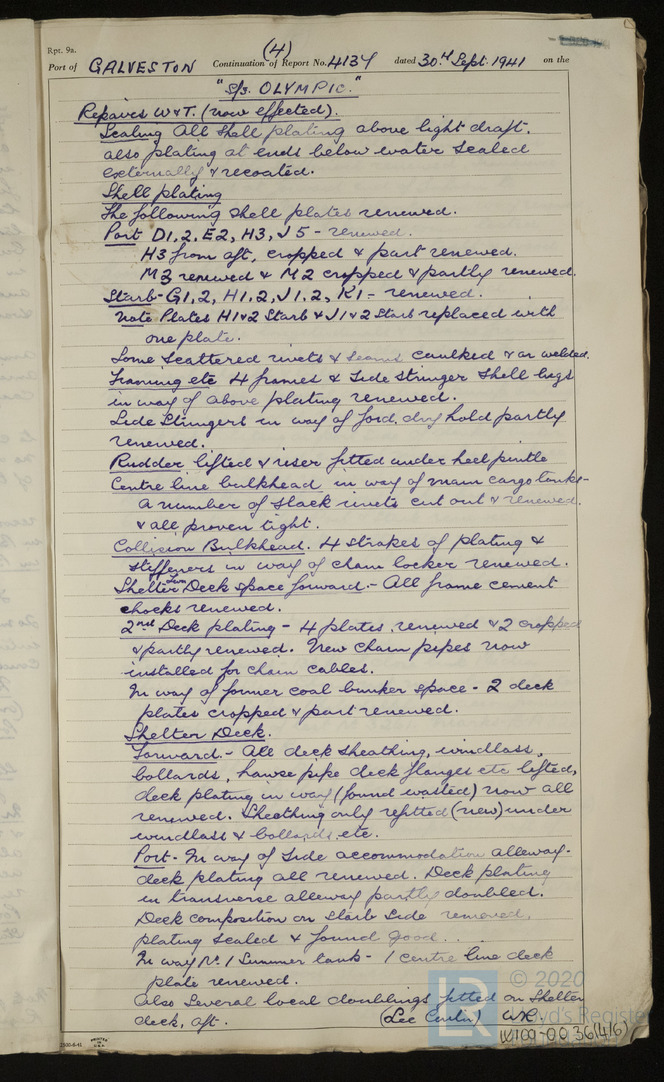 Rpt. 9a.
(4)
Port of GALVESTON Continuation of Report No. 4134 dated 30th Sept. 1941 on the
"S/S. OLYMPIC."
Repairs W&T. (now effected).
Scaling All shell plating above light draft,
also plating at ends below water scaled
externally & recoated.
Shell plating
The following shell plates renewed.
Port D1,2, E2, H3, J5 - renewed.
H3 from aft, cropped & part renewed.
M3 renewed & M2 cropped & partly renewed.
Starb - G1,2, H1,2, J1,2, K1 - renewed.
Note Plates H1&2 Starb & J1&2 Starb replaced with
one plate.
Some scattered rivets & seams caulked & or welded.
Framing etc 4 frames & side stringer shell lugs
in way of above plating renewed.
Side Stringers in way of ford. dry hold partly
renewed.
Rudder lifted & riser fitted under heel pintle
Centre line bulkhead in way of main cargo tanks -
a number of slack rivets cut out & renewed
& all proven tight.
Collision Bulkhead. 4 strakes of plating &
stiffeners in way of chain locker renewed.
Shelter Twn Deck space forward. - All frame cement
chocks renewed.
2nd Deck plating - 4 plates renewed & 2 cropped
& partly renewed. New chain pipes now
installed for chain cables.
In way of former coal bunker space - 2 deck
plates cropped & part renewed.
Shelter Deck.
Forward. - All deck sheathing, windlass,
bollards, hawse pipe deck flanges etc lifted,
deck plating in way (found wasted) now all
renewed. Sheathing only refitted (new) under
windlass & bollards etc.
Port - In way of side accommodation alleway -
deck plating all renewed. Deck plating
in transverse alleway partly doubled.
Deck composition on Starb side removed,
plating scaled & found good.
In way No. 1 Summer tank - 1 centre line deck
plate renewed.
Also several local doublings fitted on Shelter
deck, aft. (Lee Carlin) WR.
LR
© 2020
Lloyd's Register
W109-0036(4/6)
PRINTED IN U.S.A.